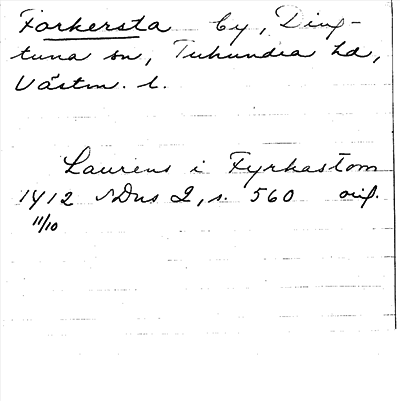 Forkersta by, Ding-
tuna sn, Tuhundra hd,
Västm. l.
Laurens i Fyrkastom
1412 SDns 2, s. 560 orig.
11/10